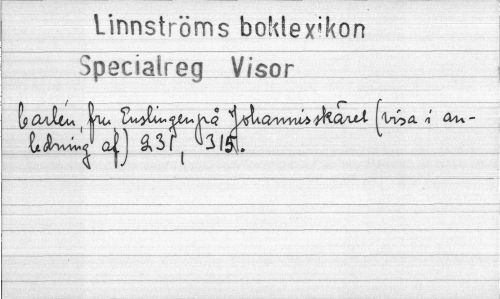 Linnströms boklexikon
Specialreg Visor
Carlén, fru Enslingen på Johannisskäret (visa i an-
ledning af) 231, 315.